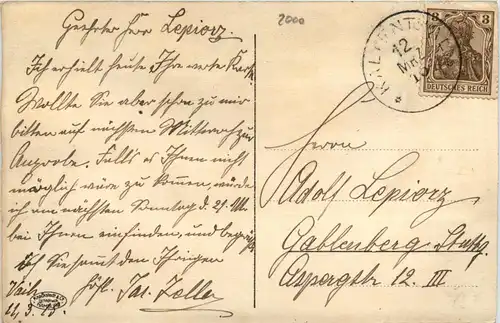 Geehrter Herr Lepiorz.
2000
Ich erhielt heute Ihre werte Karte.
Wollte Sie aber schon zu mir
bitten auf nächsten Mittwoch zur
Anprobe. Falls es Ihnen nicht
möglich wäre zu kommen, würde
ich am nächsten Sonntag d. 21. M.
bei Ihnen einfinden, und
Sie samt den Ihrigen
höfl. Jac. Zeller
KALTENT
12
MRZ
3 3
DEUTSCHES REICH
Herrn
Adolf Lepiorz
Gablenberg Stuttg.
Aspergstr 12. III